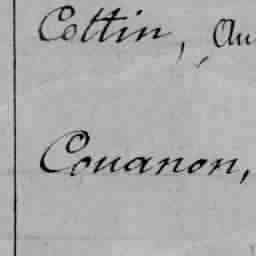 Cottin, Au
Couanon,